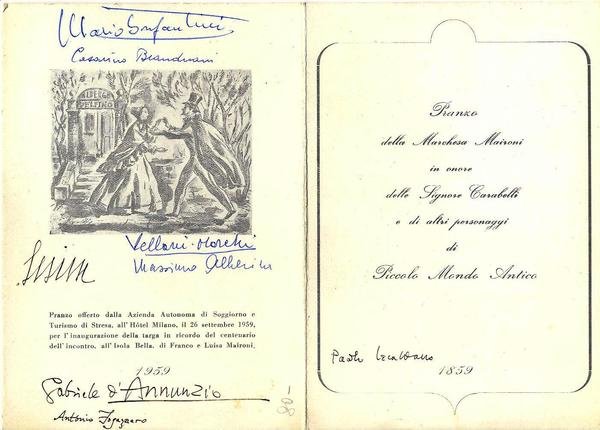 Mario Bonfantini
Cesarino Branduani
ALBERGO
DELFINO
Vellani-Marchi
Massimo Alberini
Pranzo offerto dalla Azienda Autonoma di Soggiorno e
Turismo di Stresa, all'Hôtel Milano, il 26 settembre 1959,
per l'inaugurazione della targa in ricordo del centenario
dell'incontro, all'Isola Bella, di Franco e Luisa Maironi.
1959
Gabriele d'Annunzio
Antonio Fogazzaro
Pranzo
della Marchesa Maironi
in onore
delle Signore Carabelli
e di altri personaggi
di
Piccolo Mondo Antico
1859